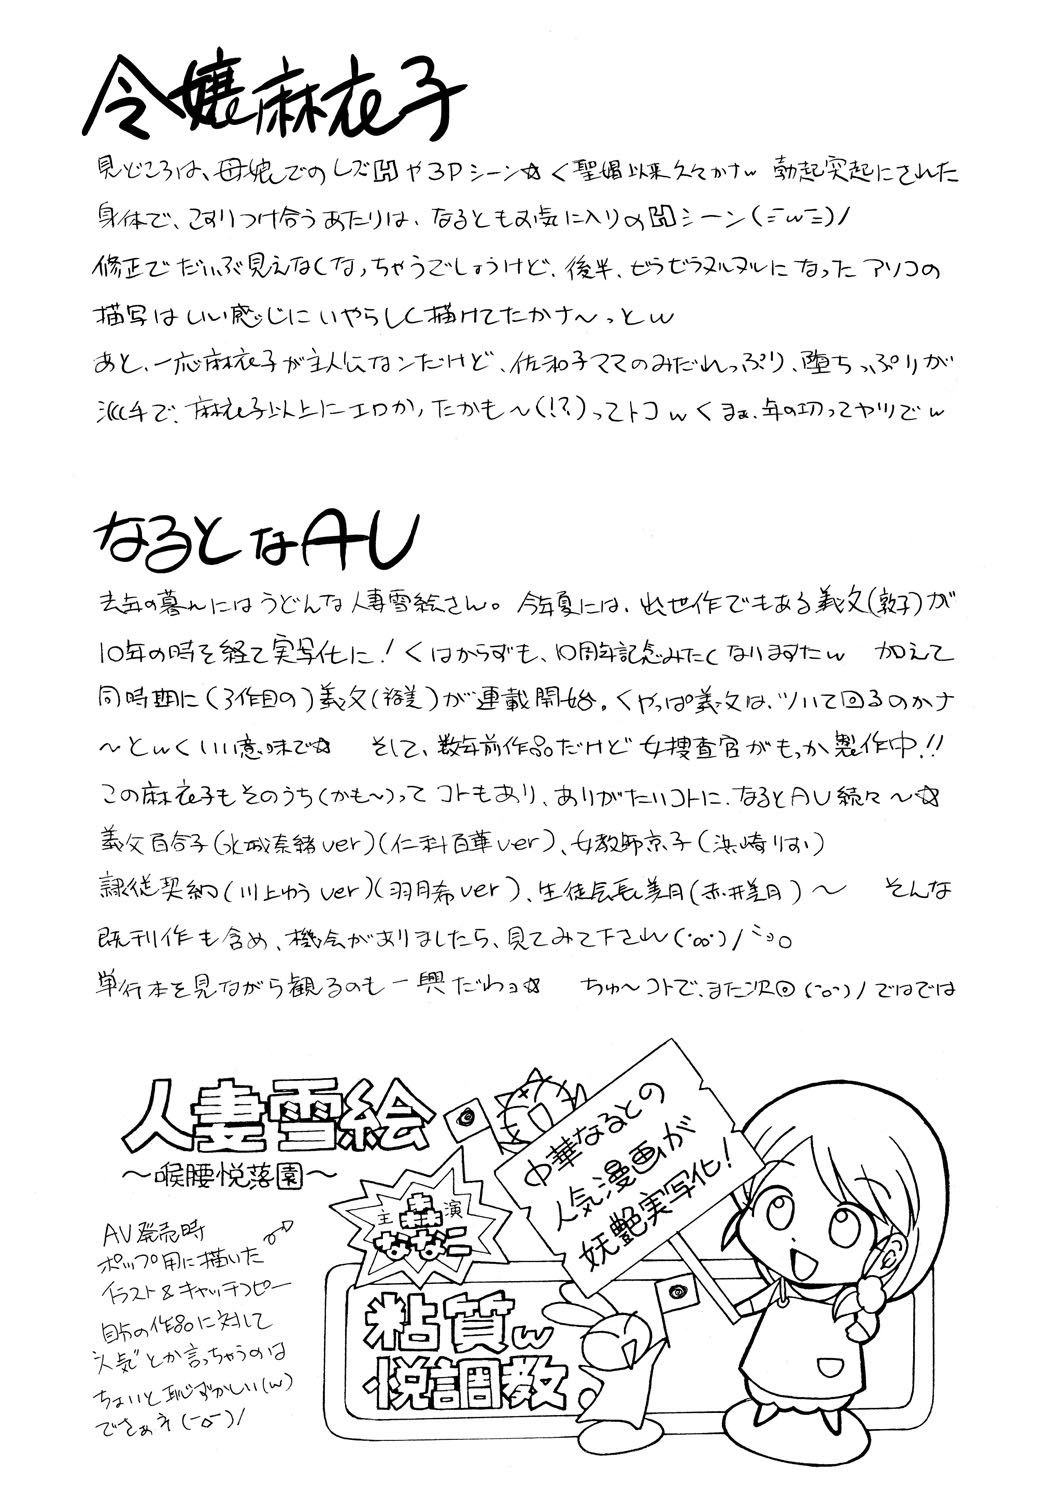 令嬢麻衣子
見どころは、母娘でのレズHや3Pシーン☆く聖娼以来久々かナw 勃起突起にされた
身体で、こすりつけ合うあたりは、なるともお気に入りのHシーン(=w=)/
修正でだいぶ見えなくなっちゃうでしょうけど、後半、ぜらぜらヌルヌルになったアソコの
描写はいい感じにいやらしく描けてたかナ〜っとw
あと、一応麻衣子が主人公なンだけど、佐和子ママのみだれっぷり、堕ちっぷりが
派手で、麻衣子以上にエロかったかも〜(!?)ってトコw くまぁ、年の功ってヤツでw
なるとなAV
去年の暮れにはうどんな人妻雪絵さん。 今年夏には、出世作でもある義父(敦子)が
10年の時を経て実写化に!くはからずも、10周年記念みたくなりますたw 加えて
同時期に(3作目の)義父(裕美)が連載開始。くやっぱ義父は、ツいて回るのかナ
〜とwくいい意味で☆ そして、数年前作品だけど女捜査官がもっか製作中!!
この麻衣子もそのうち(かも〜)って コトもあり、ありがたいコトに、なるとAV続々〜☆
義父百合子(北城奈緒ver)(仁科百華ver)、女教師京子(浜崎りお)
隷従契約(川上ゆうver)(羽月希ver)、生徒会長美月(赤井美月)〜 そんな
既刊作も含め、機会がありましたら、見てみて下さいw
単行本を見ながら観るのも一興だわョ☆ ちゅ〜コトで、また次回(^o^)/ではでは
人妻雪絵
〜喉腰悦落園〜
中華なるとの
人気漫画が
妖艶実写化!
主演
ななこ
粘質w
悦調教。
AV発売時
ポップ用に描いた
イラスト&キャッチコピー
自分の作品に対して
"人気"とか言っちゃうのは
ちょいと恥ずかしい(w)
でさぁネ(-o-)/